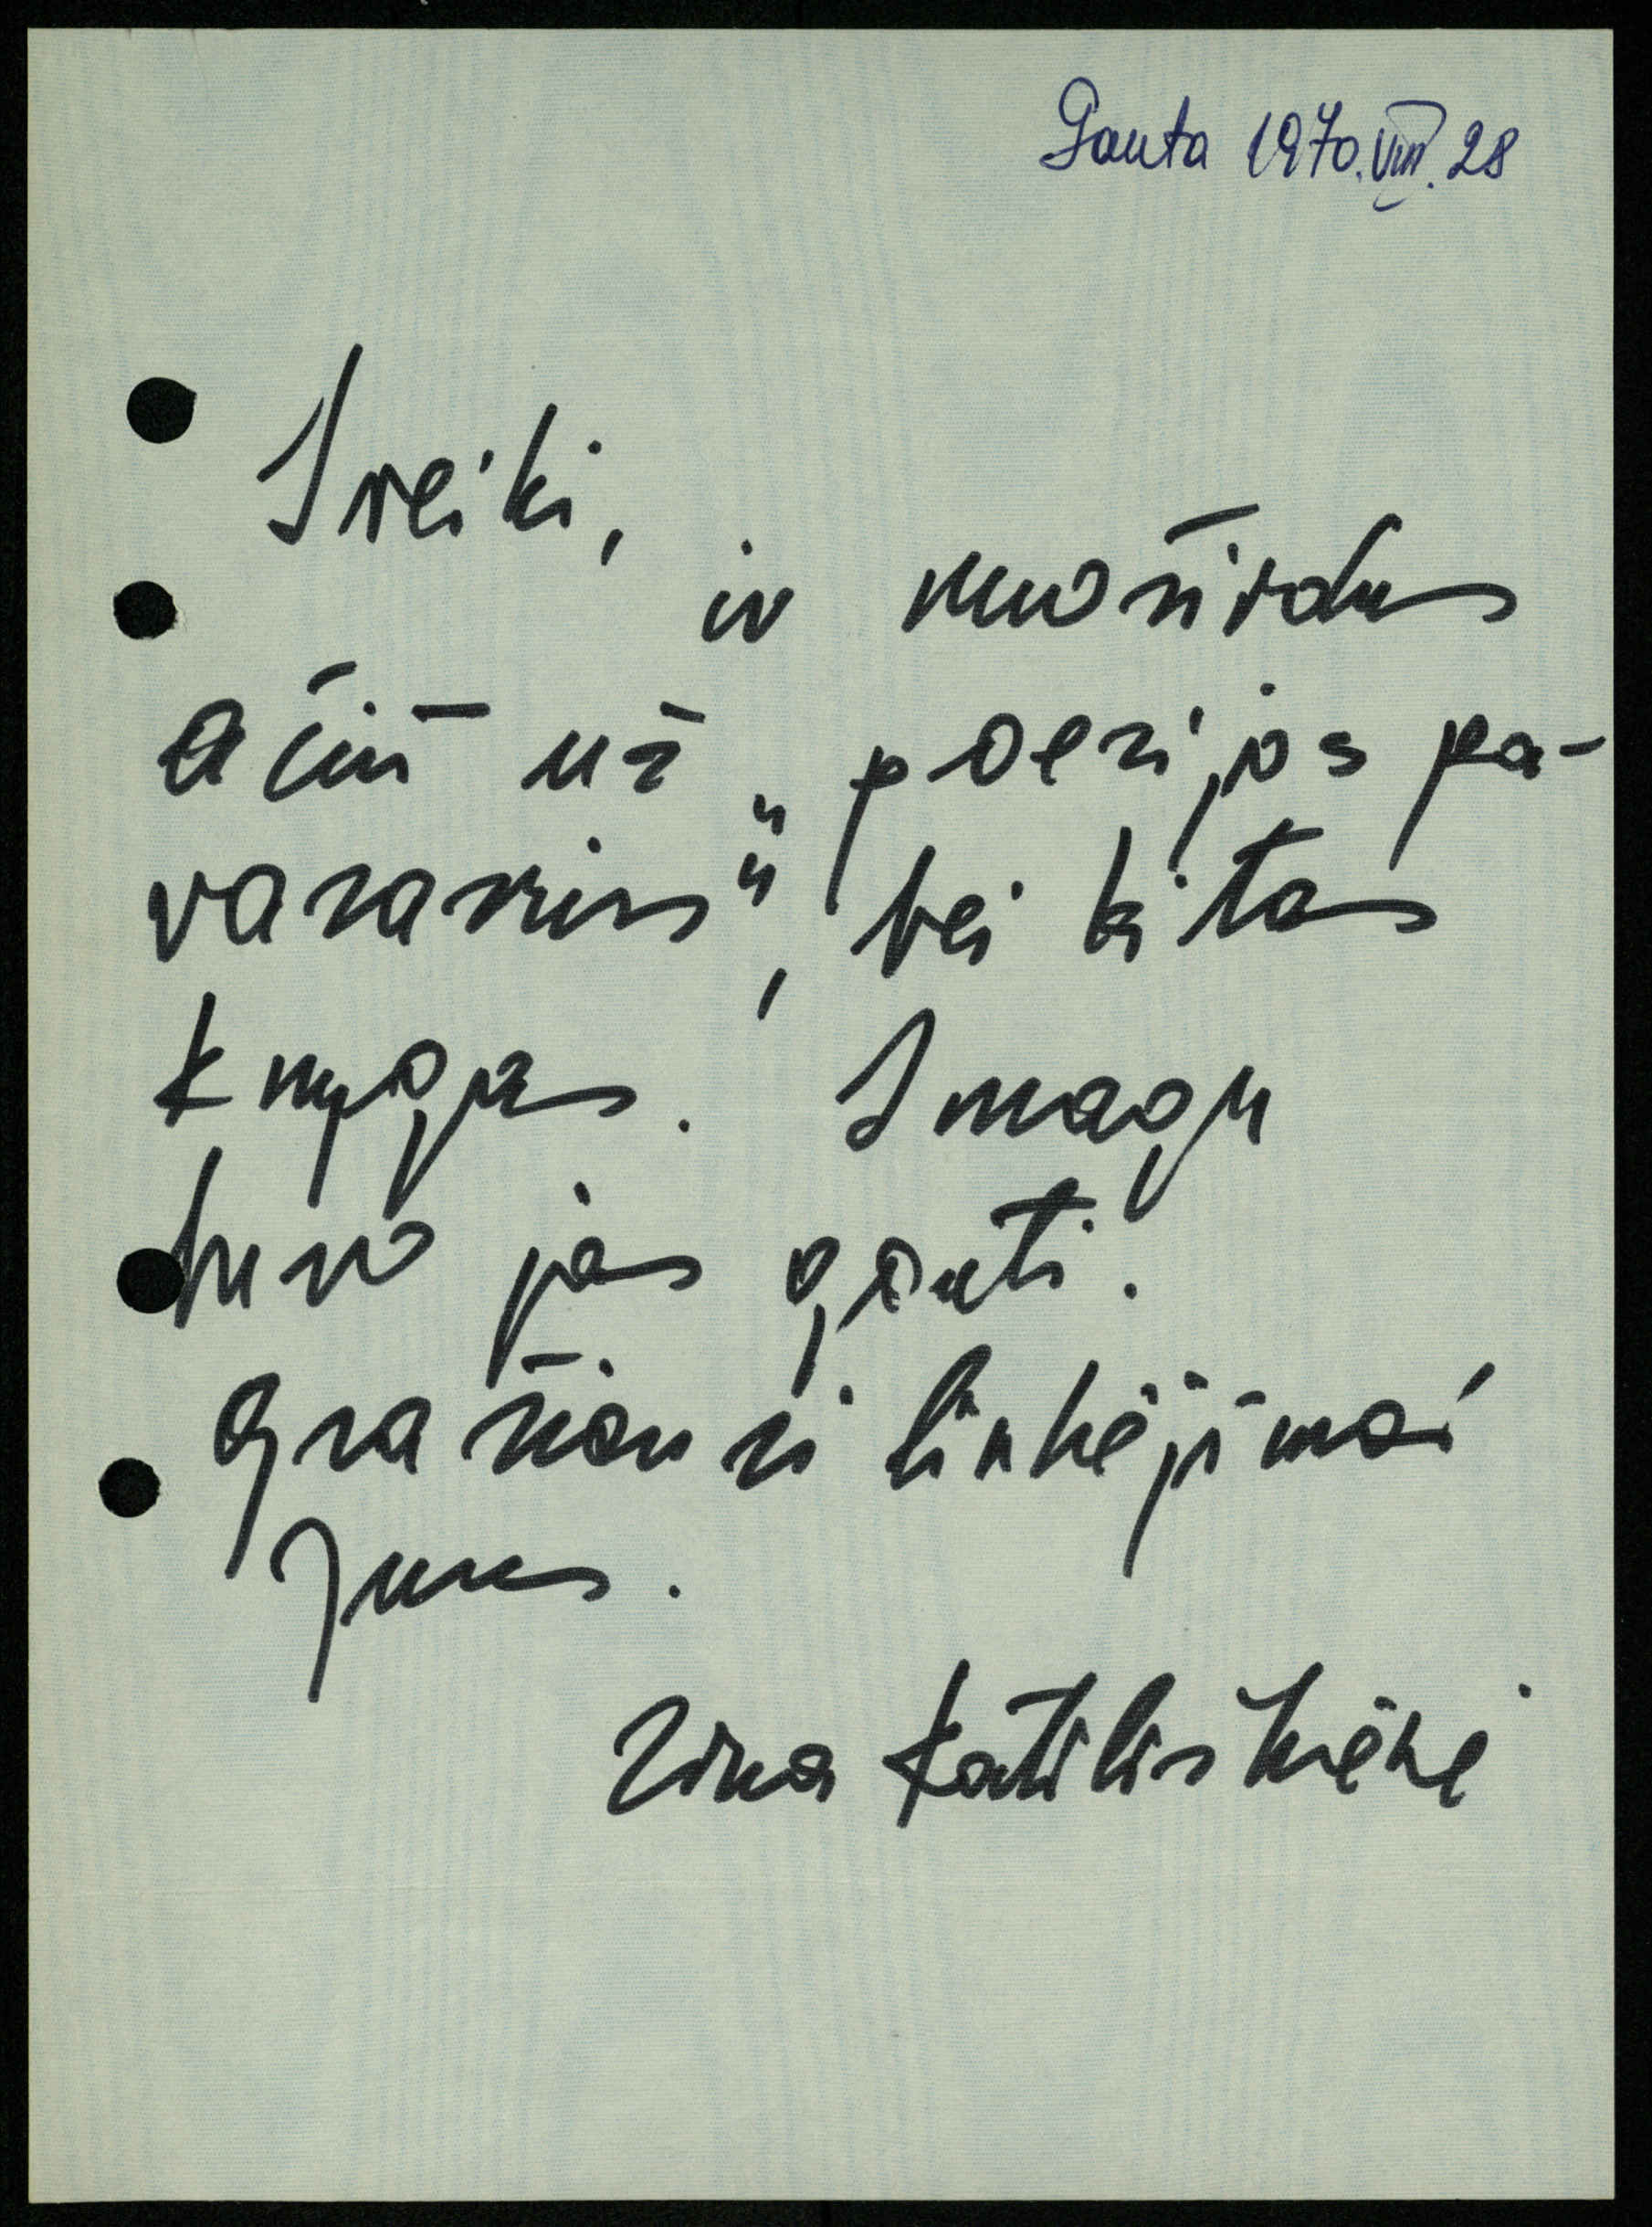 Gauta 1970.VIII.28
Sveiki,
ir nuoširdus
ačiū už „poezijos pa-
vasarius", bei kitas
knygas. Smagu
buvo jas gauti.
Gražiausi linkėjimai
Jums.
Zina Katiliškienė